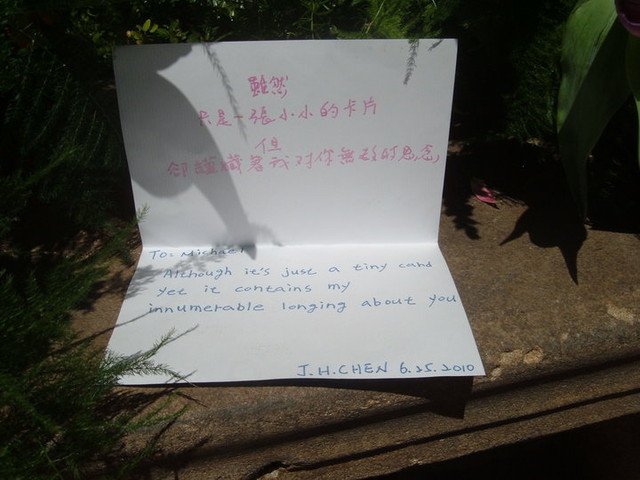 雖然
只是一張小小的卡片
但
卻蘊藏著我对你無数的思念
To: Michael
Although it's just a tiny card
yet it contains my
innumerable longing about you
J.H.CHEN 6.25.2010